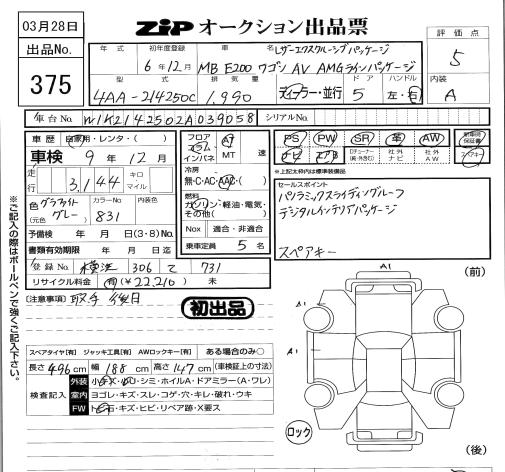 03月28日
出品No.
375
ZIP オークション出品票
評価点
5
内装
A
年式 初年度登録 車名 レザーエクスクルーシブパッケージ
6年12月 MB E200 ワゴン AV AMGラインパッケージ
型式 排気量 ドア ハンドル
4AA-214250C 1,990 ディーラー・並行 5 左・右
車台No. W1K2142502A039058 シリアルNo.
車歴 自家用・レンタ・( )
車検 9年12月
走行 3,144 キロ マイル
色 グラファイトグレー (元色) カラーNo. 831 内装色
予備検 年 月 日(3・8)No.
書類有効期限 年 月 日
登録No. 横浜 306 て 731
リサイクル料金 有(¥22,210) 未
フロア コラム インパネ AT MT 速
冷房 無・C・AC・AAC・( )
燃料 ガソリン・軽油・電気・その他( )
Nox 適合・非適合
乗車定員 5 名
PS PW SR 革 AW 新車時保証書
ナビ エアB 社外ナビ 社外AW スペアキー
*上記太枠内は標準装備品
セールスポイント
パノラミックスライディングルーフ
デジタルインテリアパッケージ
スペアキー
(注意事項) 取手 後日
初出品
スペアタイヤ[有] ジャッキ工具[有] AWロックキー[有] ある場合のみ○
長さ 496cm 幅 188cm 高さ 147cm (車検証上の寸法)
検査記入
外装 小キズ・凹・シミ・ホイルA・ドアミラー(A・ワレ)
室内 ヨゴレ・キズ・スレ・コゲ・穴・キレ・破れ・ウキ
FW トビ石・キズ・ヒビ・リペア跡・X要ス
※ご記入の際はボールペンで強くご記入下さい。
A1
(前)
A1
A1
ロック
(後)